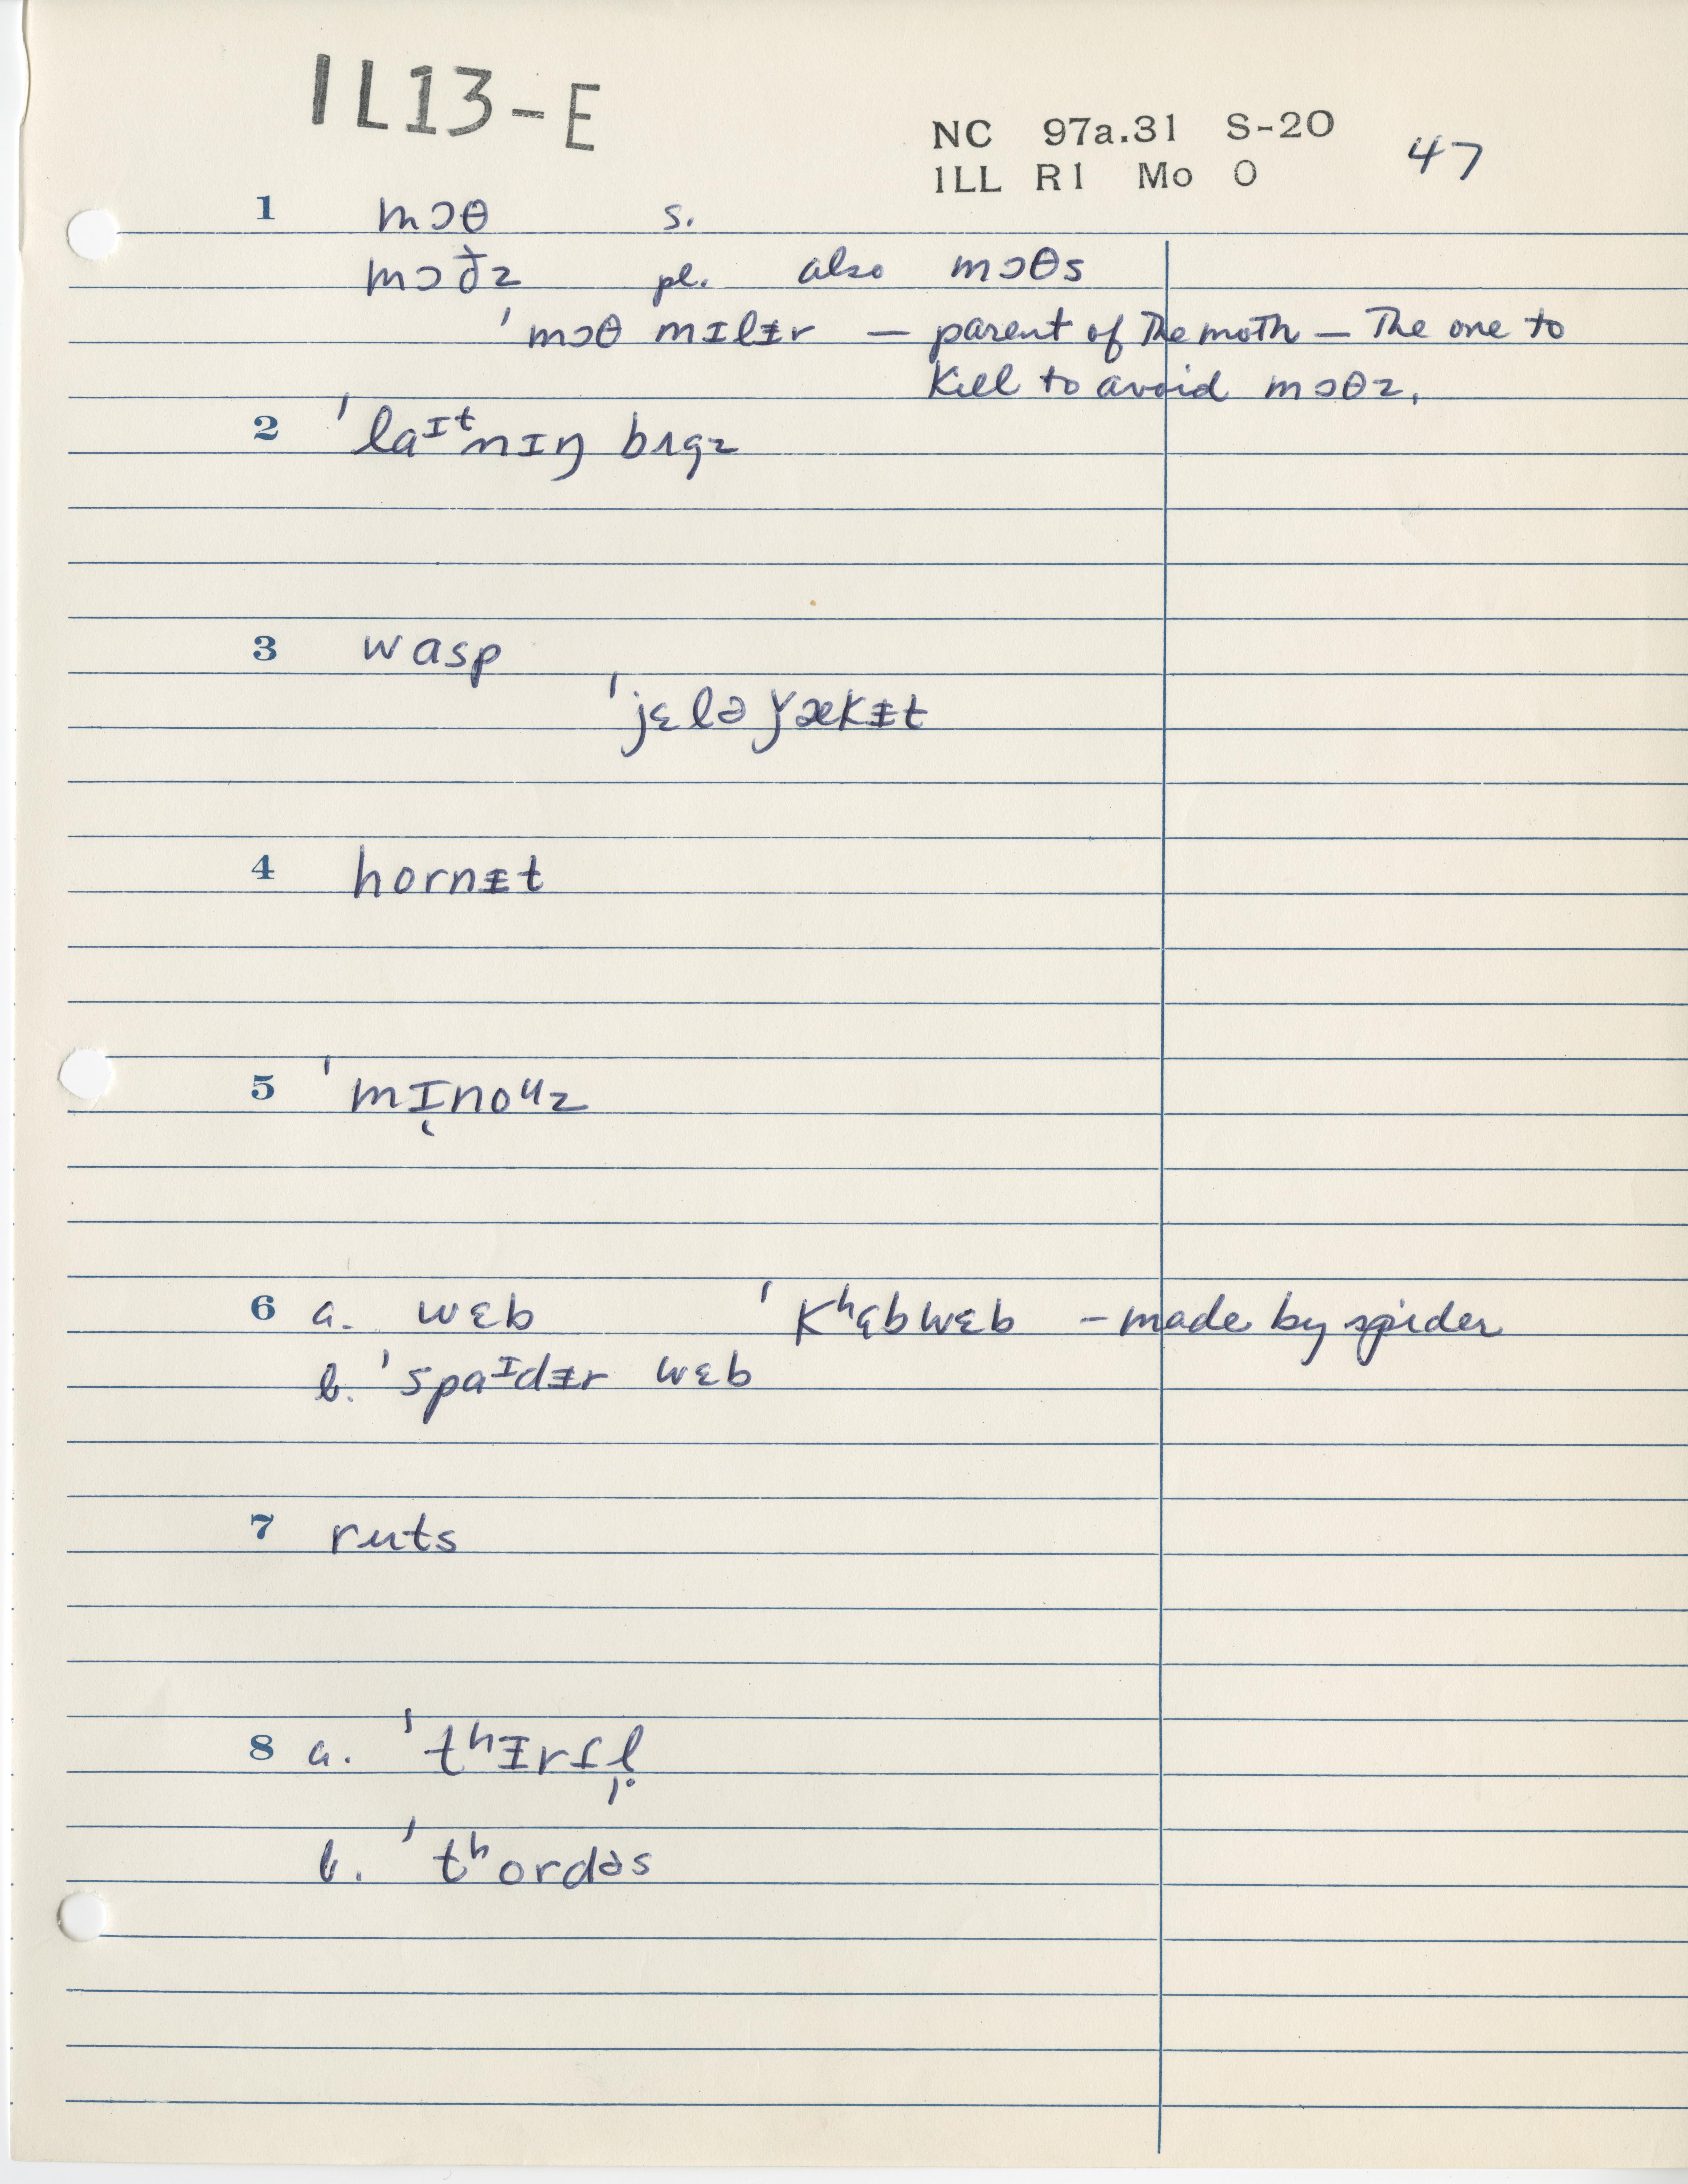 IL13-E
NC 97a.31 S-20 47
ILL R1 Mo O
1 mɔθ s.
mɔðz pl. also mɔθs
ˈmɔθ mɪlᵻr — parent of the moth — The one to
kill to avoid mɔθz.
2 ˈlaᶦᵗnɪŋ bʌgz
3 wasp
ˈjɛlə ǰækᵻt
4 hornᵻt
5 ˈmɪ̨noᶸz
6 a. wɛb ˈkʰɑbwɛb – made by spider
b. ˈspaᶦdᵻr wɛb
7 ruts
8 a. ˈtʰᵻrtl̩
b. ˈtʰordəs